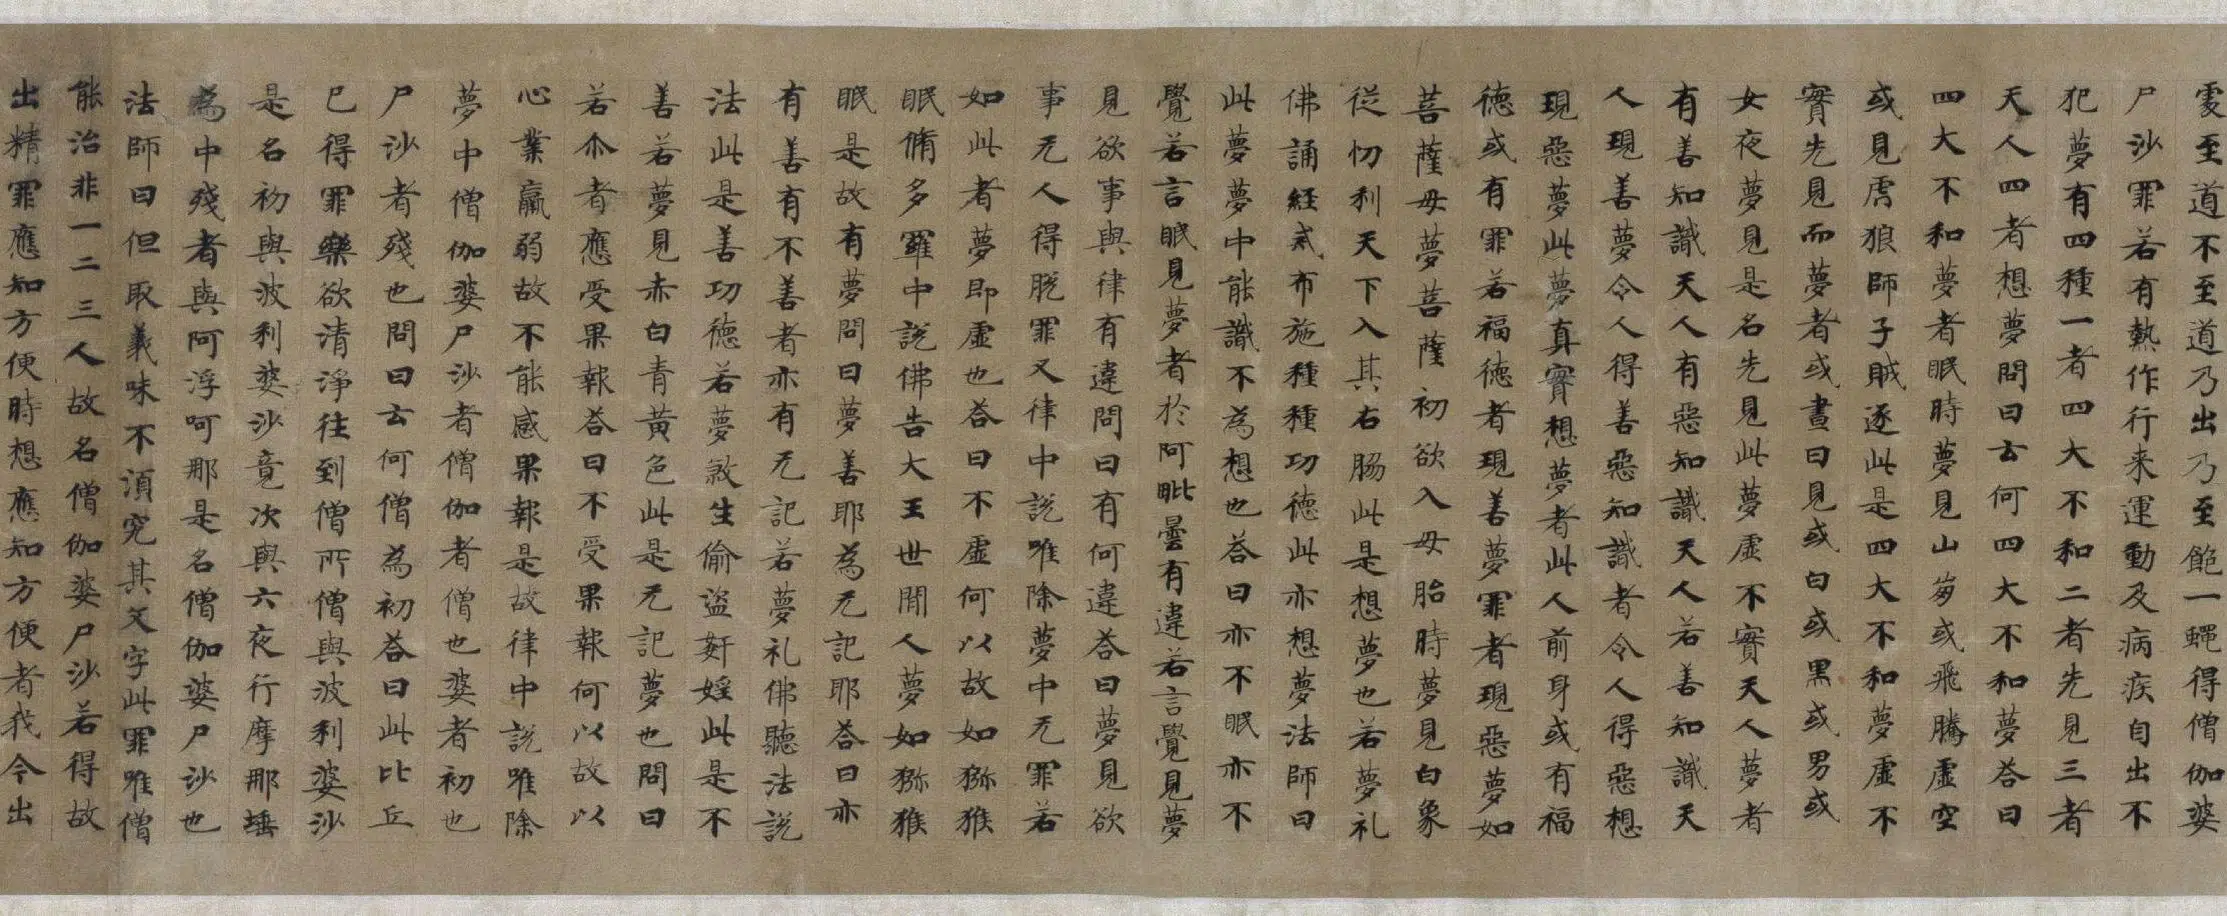 處至道不至道乃出乃至飽一蠅得僧伽婆
尸沙罪若有熱作行来運動及病疾自出不
犯夢有四種一者四大不和二者先見三者
天人四者想夢問曰云何四大不和夢荅曰
四大不和夢者眠時夢見山崩或飛騰虛空
或見虎狼師子賊逐此是四大不和夢虛不
實先見而夢者或晝日見或白或黑或男或
女夜夢見是名先見此夢虛不實天人夢者
有善知識天人有惡知識天人若善知識天
人現善夢令人得善惡知識者令人得惡想
現惡夢此夢真實想夢者此人前身或有福
德或有罪若福德者現善夢罪者現惡夢如
菩薩母夢菩薩初欲入母胎時夢見白象
從忉利天下入其右脇此是想夢也若夢礼
佛誦經貳布施種種功德此亦想夢法師曰
此夢夢中能識不為想也荅曰亦不眠亦不
覺若言眠見夢者於阿毗曇有違若言覺見夢
見欲事與律有違問曰有何違荅曰夢見欲
事无人得脫罪又律中說唯除夢中无罪若
如此者夢即虛也荅曰不虛何以故如猕猴
眠脩多羅中說佛告大王世間人夢如猕猴
眠是故有夢問曰夢善耶為无記耶荅曰亦
有善有不善者亦有无記若夢礼佛聽法說
法此是善功德若夢煞生偷盜奸婬此是不
善若夢見赤白青黃色此是无記夢也問曰
若尒者應受果報荅曰不受果報何以故以
心業羸弱故不能感果報是故律中說唯除
夢中僧伽婆尸沙者僧伽者僧也婆者初也
尸沙者殘也問曰云何僧為初荅曰此比丘
已得罪樂欲清淨往到僧所僧與波利婆沙
是名初與波利婆沙竟次與六夜行摩那埵
為中殘者與阿浮呵那是名僧伽婆尸沙也
法師曰但取義味不湏究其文字此罪唯僧
能治非一二三人故名僧伽婆尸沙若得故
出精罪應知方便時想應知方便者我今出